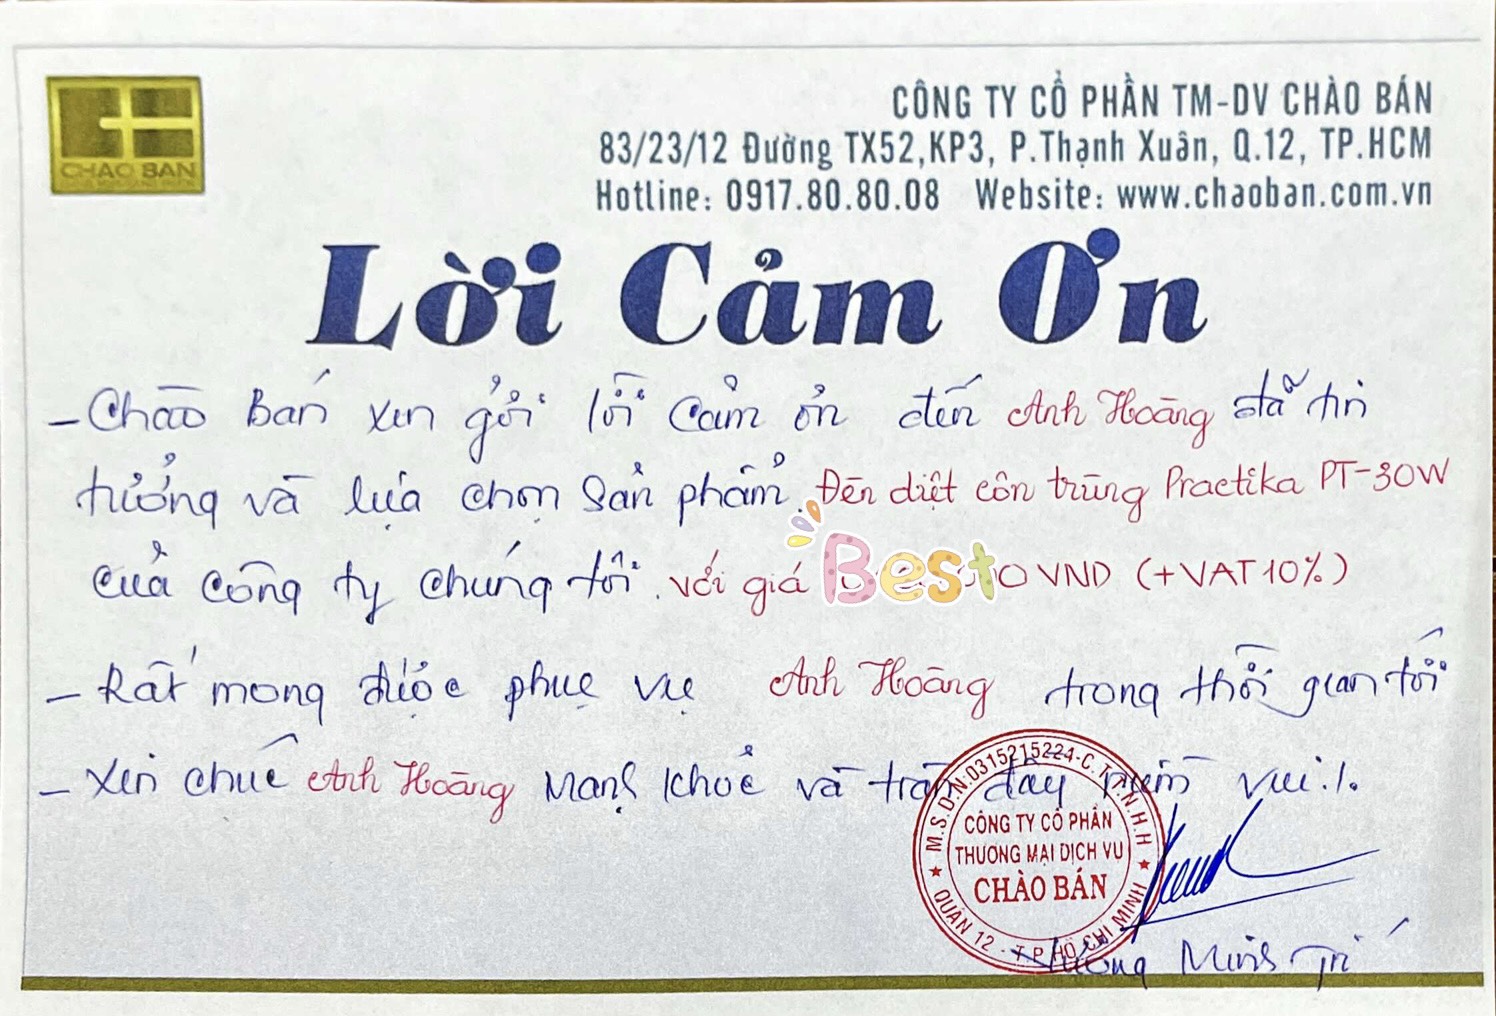 CHAO BAN
CÔNG TY CỔ PHẦN TM-DV CHÀO BÁN
83/23/12 Đường TX52,KP3, P.Thạnh Xuân, Q.12, TP.HCM
Hotline: 0917.80.80.08 Website: www.chaoban.com.vn
Lời Cảm Ơn
- Chào Bán xin gửi lời cảm ơn đến Anh Hoàng đã tin
tưởng và lựa chọn sản phẩm Đèn diệt côn trùng Practika PT-30W
của công ty chúng tôi. với giá Best 0 VND (+VAT 10%)
- Rất mong được phục vụ Anh Hoàng trong thời gian tới
- Xin chúc Anh Hoàng mạnh khoẻ và tràn đầy niềm vui./.
M.S.D.N:0315215224-C.T.T.N.H.H
CÔNG TY CỔ PHẦN
THƯƠNG MẠI DỊCH VỤ
CHÀO BÁN
QUẬN 12 - T.P HỒ CHÍ MINH
Minh Trí